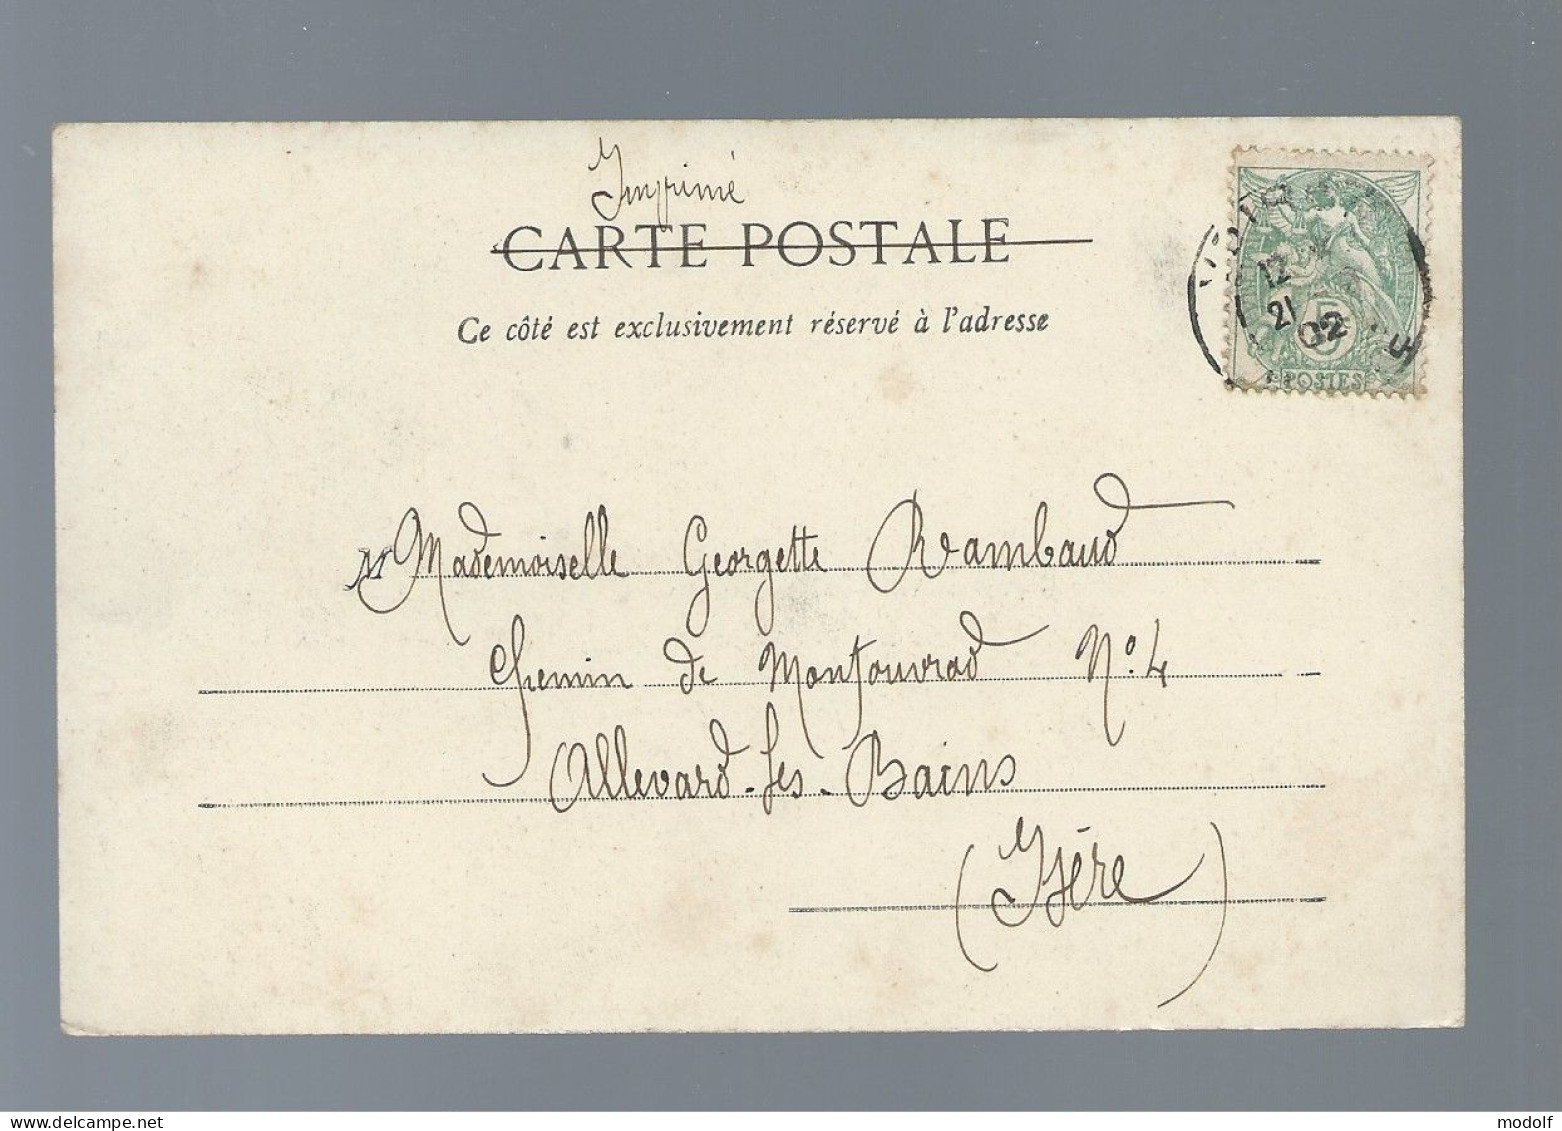 Imprimé
CARTE POSTALE
Ce côté est exclusivement réservé à l'adresse
12
21
02
5
POSTES
M Mademoiselle Georgette Rambaud
Chemin de Montouvrad N° 4
Allevard-les-Bains
(Isère)
www.delcampe.net
modolf